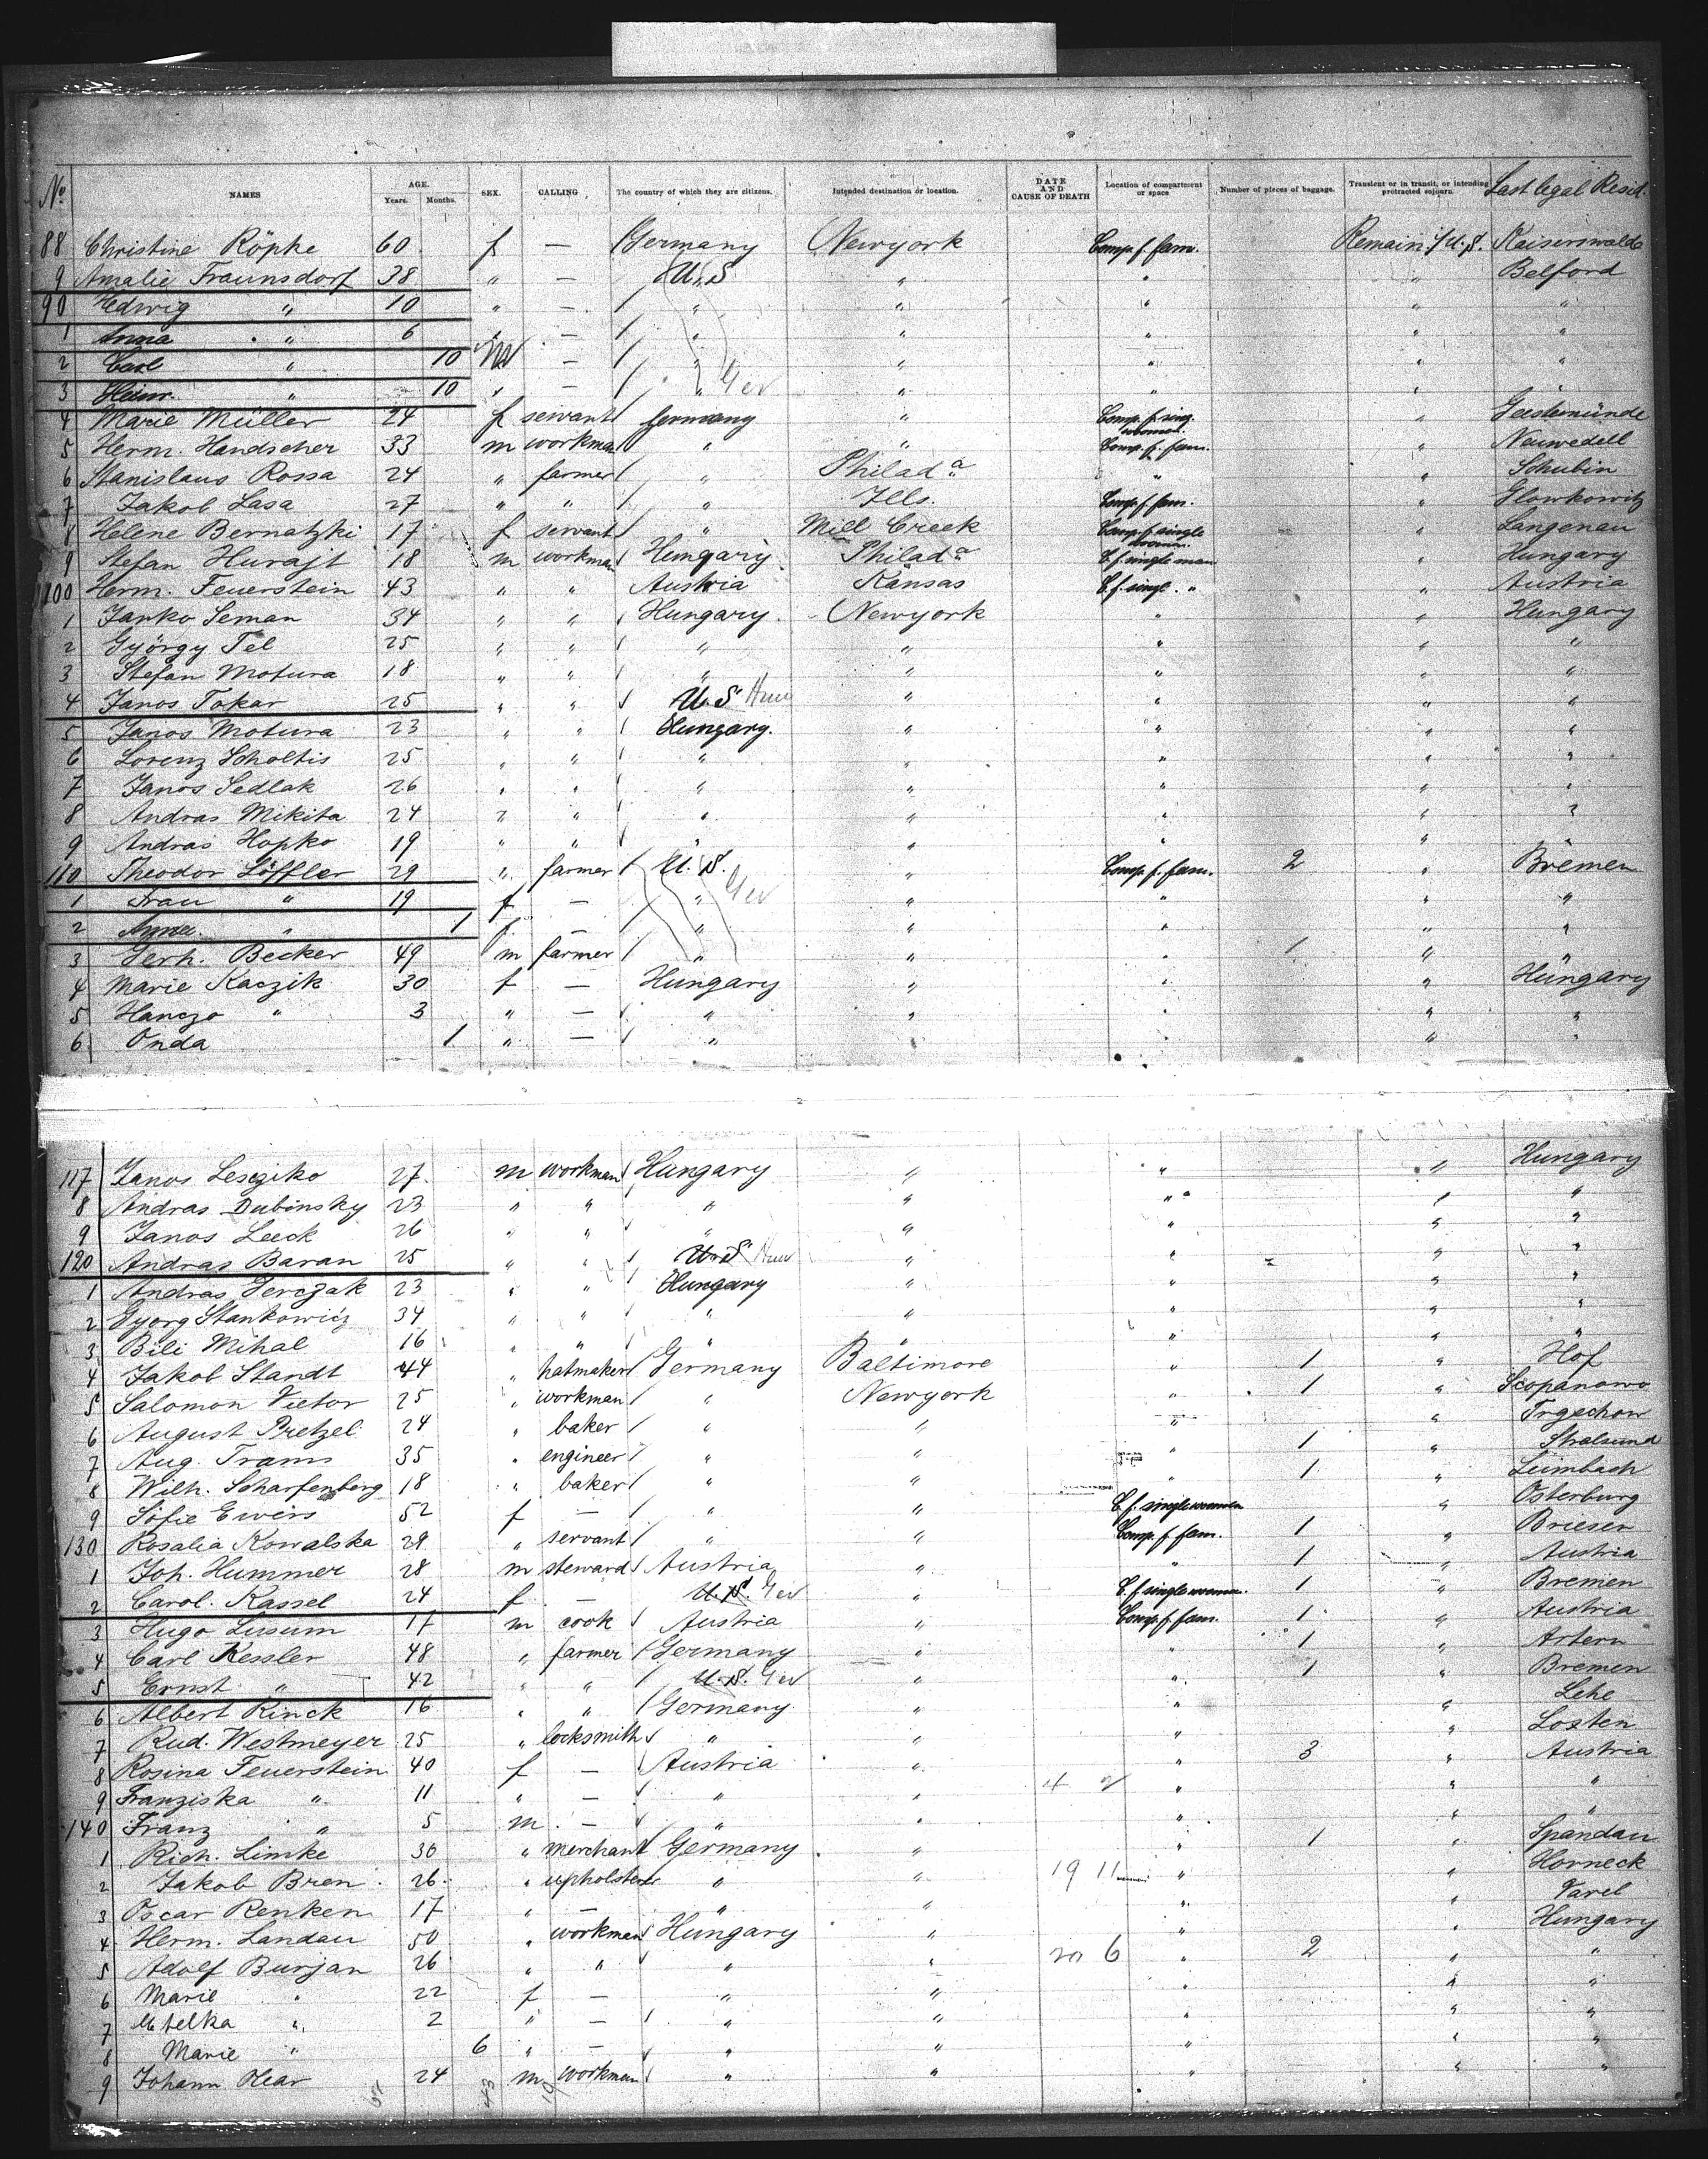 No. NAMES AGE. Years. Months. SEX. CALLING The country of which they are citizens. Intended destination or location. DATE AND CAUSE OF DEATH Location of compartment or space Number of pieces of baggage. Transient or in transit, or intending protracted sojourn. Last legal Resid.
88 Christine Röpke 60 f — Germany Newyork Comp. f. fam. Remain i/U.S. Kaiserswalde
9 Amalie Fraunsdorf 38 " — U.S " " " Belford
90 Hedwig " 10 " — " " " " "
1 Anna " 6 " — " " " " "
2 Carl " 10 M — " " " " "
3 Heinr. " 10 " — " Ger " " " "
4 Marie Müller 24 f servant Germany " Comp. f. sing. women. " Geestemünde
5 Herm. Handscher 33 m workman " " Comp. f. fam. " Neuwedell
6 Stanislaus Rossa 24 " farmer " Philada " " Schubin
7 Jakob Lasa 27 " " " Ills. Comp. f. fam. " Glowkowitz
8 Helene Bernatzki 17 f servant " Mill Creek Comp. f. single women. " Langenau
9 Stefan Hurajt 18 m workman Hungary Philada C. f. single man " Hungary
100 Herm. Feuerstein 43 " " Austria Kansas C. f. singl. " " Austria
1 Janko Seman 34 " " Hungary. Newyork " " Hungary
2 György Tel 25 " " " " " " "
3 Stefan Motura 18 " " " " " " "
4 Janos Tokar 25 " " U.S Hun " " " "
5 Janos Motura 23 " " Hungary. " " " "
6 Lorenz Scholtis 25 " " " " " " "
7 Janos Sedlak 26 " " " " " " "
8 Andras Mikita 24 " " " " " " "
9 Andras Hopko 19 " " " " " " "
110 Theodor Löffler 29 " farmer U.S. " Comp. f. fam. 2 " Bremen
1 Frau " 19 f — " Ger " " " "
2 Anna " 1 f — " " " " "
3 Gerh. Becker 49 m farmer " " " 1 " "
4 Marie Kaczik 30 f — Hungary " " " Hungary
5 Hanczo " 3 " — " " " " "
6 Onda 1 " — " " " " "
117 Janos Lescziko 27 m workman Hungary " " " Hungary
8 Andras Dubinsky 23 " " " " " " "
9 Janos Leck 26 " " " " " " "
120 Andras Baran 25 " " U.S Hun " " " "
1 Andras Gerczak 23 " " Hungary " " " "
2 Gyorg Stankowicz 34 " " " " " " "
3 Bili Mihal 16 " " " " " " "
4 Jakob Standt 44 " hatmaker Germany Baltimore " 1 " Hof
5 Salomon Vietor 25 " workman " Newyork " 1 " Scopanowo
6 August Pretzel 24 " baker " " " " Trgechow
7 Aug. Trams 35 " engineer " " " 1 " Stralsund
8 Wilh. Scharfenberg 18 " baker " " " 1 " Leimbach
9 Sofie Ewers 52 f — " " C. f. single women " Osterburg
130 Rosalia Kowalska 29 " servant " " Comp. f. fam. 1 " Briesen
1 Joh. Hummer 28 m steward Austria " " 1 " Austria
2 Carol. Kassel 24 f — U.S. Ger " C. f. single women. 1 " Bremen
3 Hugo Lusum 17 m cook Austria " Comp. f. fam. 1 " Austria
4 Carl Kessler 48 " farmer Germany " " 1 " Artern
5 Ernst " 42 " " U.S. Ger " " 1 " Bremen
6 Albert Rinck 16 " " Germany " " " Lehe
7 Rud. Westmeyer 25 " locksmith " " " " Loxten
8 Rosina Feuerstein 40 f — Austria " " 3 " Austria
9 Franziska " 11 " — " " 4 " " "
140 Franz " 5 m — " " " " "
1 Rich. Limke 30 " merchant Germany " " 1 " Spandau
2 Jakob Bren 26 " upholster " " 19 11 " " Horneck
3 Oscar Renken 17 " — " " " " Varel
4 Herm. Landau 50 " workman Hungary " " Hungary
5 Adolf Burjan 26 " " " " 6 " 2 " "
6 Marie " 22 f — " " " " "
7 Etelka " 2 " — " " " " "
8 Marie " 6 " — " " " " "
9 Johann Olear 24 m workman " " " " "